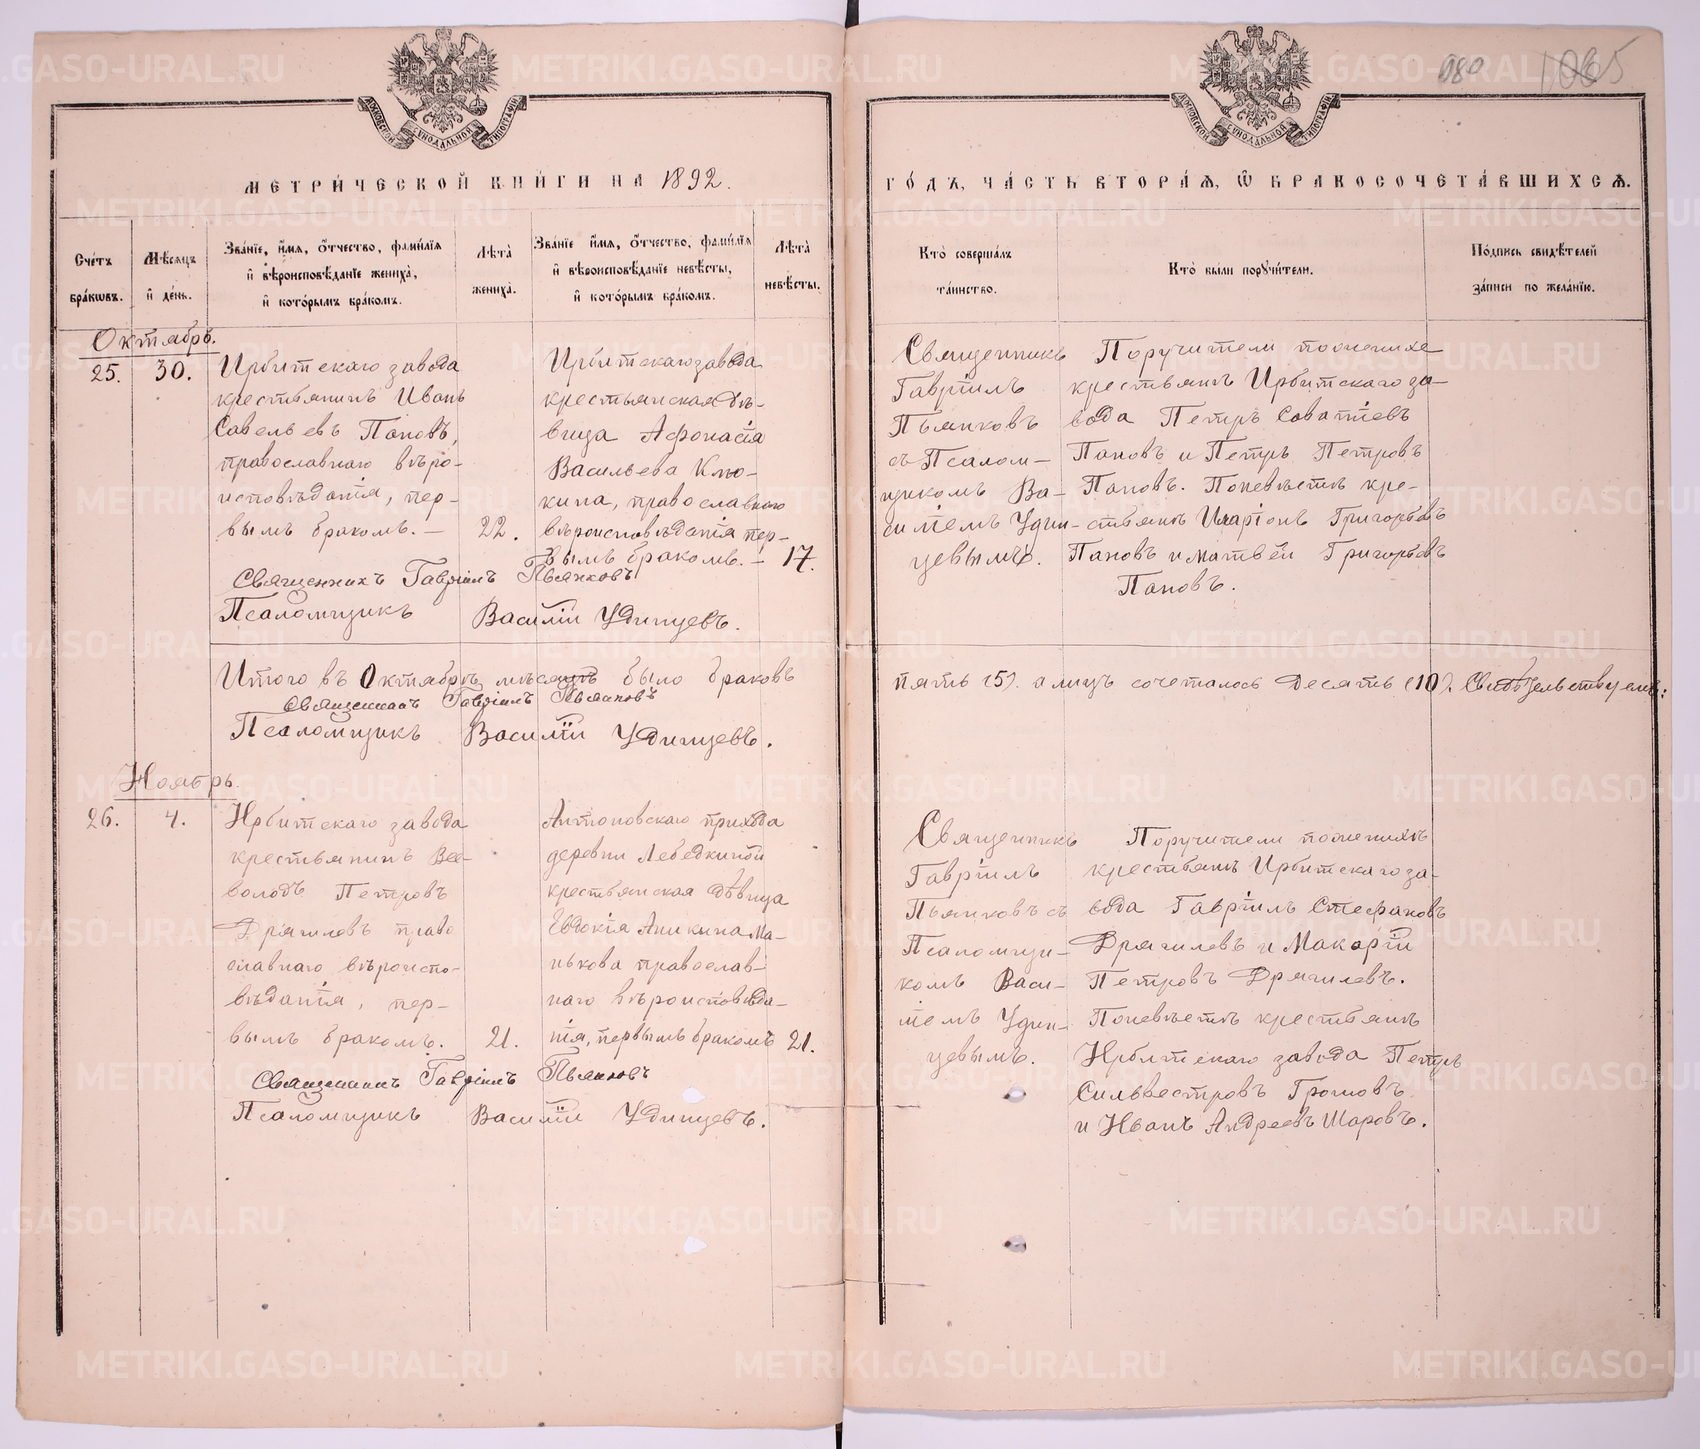 080 1065
МОСКОВСКОЙ СѴНОДАЛЬНОЙ ТИПОГРАФІИ
МОСКОВСКОЙ СѴНОДАЛЬНОЙ ТИПОГРАФІИ
МЕТРИ́ЧЕСКОЙ КНИ́ГИ НА 1892.
ГО́ДЪ, ЧА́СТЬ ВТОРА́Ѧ, Ѿ БРАКОСОЧЕТА́ВШИХСѦ.
Сче́тъ
бра́кѡвъ.
Мѣ́сѧцъ
и҆ де́нь.
Зва́нїе, и҆́мѧ, ѻ҆́тчество, фами́лїѧ
и҆ вѣроисповѣ́данїе жениха̀,
и҆ кото́рымъ бра́комъ.
Лѣ́та
жениха̀.
Зва́нїе и҆́мѧ, ѻ҆́тчество, фами́лїѧ
и҆ вѣроисповѣ́данїе невѣ́сты,
и҆ кото́рымъ бра́комъ.
Лѣ́та
невѣ́сты.
Кто̀ соверша́лъ
та́инство.
Кто̀ были порꙋчи́тели.
По́дпись свидѣ́телей
за́писи по жела́нїю.
Октябрь.
25.
30.
Ирбитскаго завода
крестьянинъ Иванъ
Савельевъ Пановъ,
православнаго вѣро-
исповѣданія, пер-
вымъ бракомъ. —
22.
Ирбитскаго завода
крестьянская дѣ-
вица Афонасія
Васильева Клю-
кина, православнаго
вѣроисповѣданія пер-
вымъ бракомъ. —
17.
Священникъ
Гавріилъ
Пьянковъ
съ Псалом-
щикомъ Ва-
силіемъ Удин-
цевымъ.
Поручители по женихѣ
крестьянъ Ирбитскаго за-
вода Петръ Саватіевъ
Пановъ и Петръ Петровъ
Пановъ. По невѣстѣ кре-
стьянъ Иларіонъ Григорьевъ
Пановъ и Матвѣй Григорьевъ
Пановъ.
Священникъ Гавріилъ Пьянковъ
Псаломщикъ Василій Удинцевъ.
Итого въ Октябрѣ мѣсяцѣ было браковъ пять (5). а лицъ сочеталось десять (10). Свидѣтельствуемъ:
Священникъ Гавріилъ Пьянковъ
Псаломщикъ Василій Удинцевъ.
Ноябрь.
26.
4.
Ирбитскаго завода
крестьянинъ Все-
володъ Петровъ
Дрягилевъ право
славнаго вѣроиспо-
вѣданія, пер-
вымъ бракомъ.
21.
Антоновскаго прихода
деревни Лебедкиной
крестьянская дѣвица
Евдокія Аникина Ма-
нькова православ-
наго вѣроисповѣда-
нія, первымъ бракомъ
21.
Священникъ
Гавріилъ
Пьянковъ съ
Псаломщи-
комъ Васи-
ліемъ Удин-
цевымъ.
Поручители по женихѣ
крестьянъ Ирбитскаго за-
вода Гавріилъ Стефановъ
Дрягилевъ и Макарій
Петровъ Дрягилевъ.
По невѣстѣ крестьянъ
Ирбитскаго завода Петръ
Сильвестровъ Громовъ
и Иванъ Андреевъ Шаровъ.
Священникъ Гавріилъ Пьянковъ
Псаломщикъ Василій Удинцевъ.
METRIKI.GASO-URAL.RU